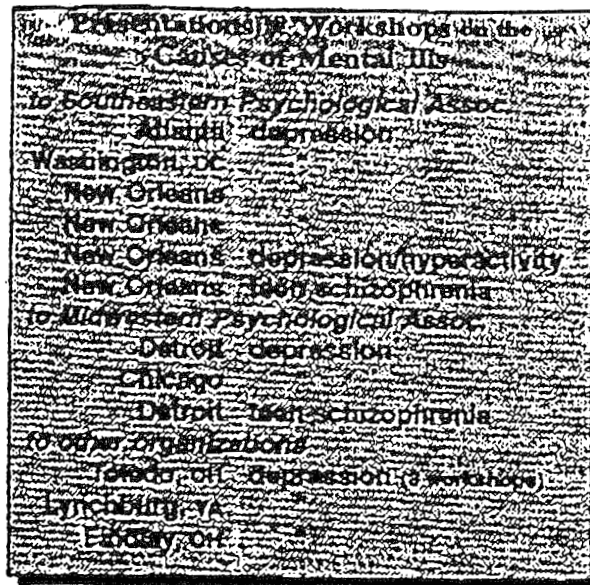 Presentations & Workshops on the
Causes of Mental Ills
to Southeastern Psychological Assoc.
Atlanta depression
Washington, DC "
New Orleans "
New Orleans "
New Orleans depression/hyperactivity
New Orleans teen schizophrenia
to Midwestern Psychological Assoc.
Detroit depression
Chicago "
Detroit teen schizophrenia
to other organizations
Toledo, OH depression (3 workshops)
Lynchburg, VA "
Findlay, OH "